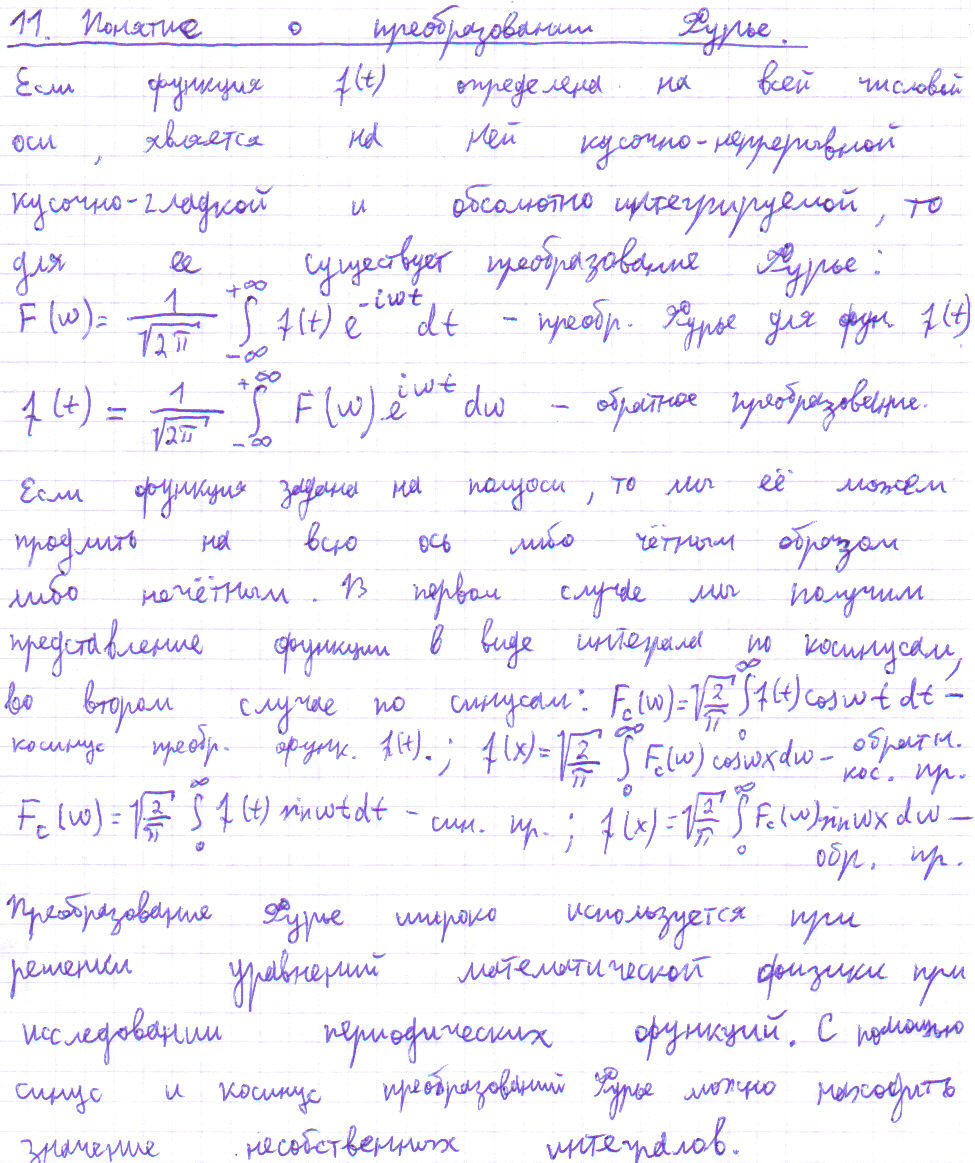 11. Понятие о преобразовании Фурье.
Если функция f(t) определена на всей числовой
оси, является на ней кусочно-непрерывной
кусочно-гладкой и абсолютно интегрируемой, то
для ее существует преобразование Фурье:
F(w)= 1/√2π ∫_{-∞}^{+∞} f(t) e^{-iwt} dt - преобр. Фурье для фун. f(t)
f(t) = 1/√2π ∫_{-∞}^{+∞} F(w) e^{iwt} dw - обратное преобразование.
Если функция задана на полуоси, то мы её можем
продлить на всю ось либо чётным образом
либо нечётным. В первом случае мы получим
представление функции в виде интеграла по косинусам,
во втором случае по синусам: F_c(w)=√2/π ∫_0^∞ f(t) cos wt dt -
косинус преобр. функ. f(t).; f(x)=√2/π ∫_0^∞ F_c(w) cos wx dw - обратн. кос. пр.
F_c(w)=√2/π ∫_0^∞ f(t) sin wt dt - син. пр.; f(x)=√2/π ∫_0^∞ F_c(w) sin wx dw -
обр. пр.
Преобразование Фурье широко используется при
решении уравнений математической физики при
исследовании периодических функций. С помощью
синус и косинус преобразований Фурье можно находить
значение несобственных интегралов.